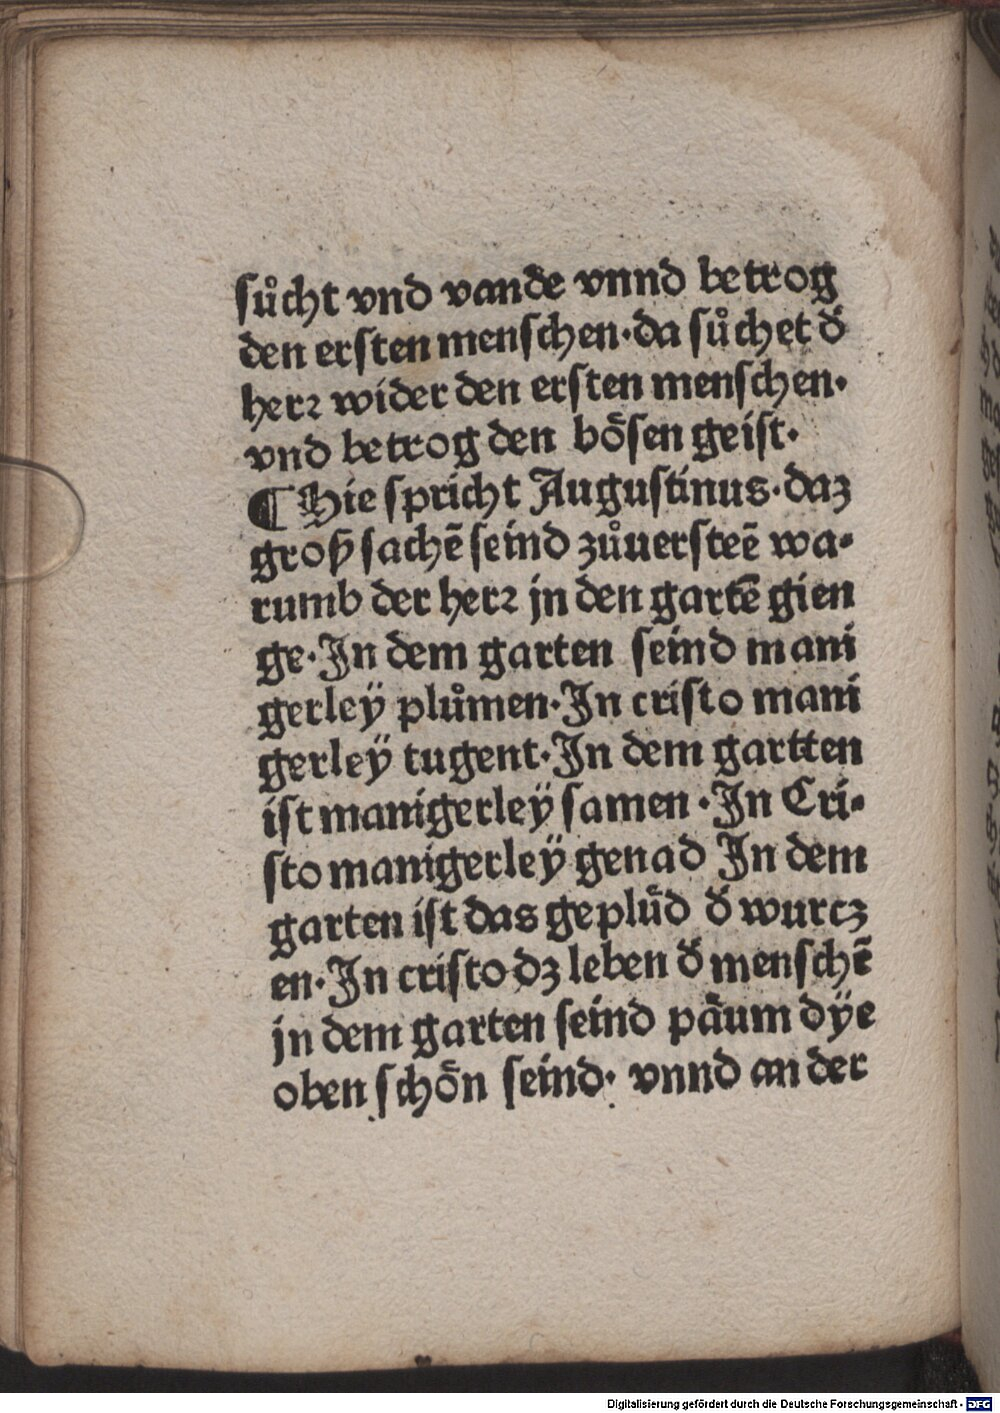 sůcht vnd vande vnnd betrog
den ersten menschen·da sůchet d̄
herꝛ wider den ersten menschen·
vnd betrog den bo̎sen geist·
¶ Hie spricht Augustinus·daz
groß sachē seind zůuersteē wa-
rumb der herꝛ jn den gartē gien
ge·Jn dem garten seind mani
gerleÿ plůmen·Jn cristo mani
gerleÿ tugent·Jn dem gartten
ist manigerleÿ samen·Jn Cri-
sto manigerleÿ genad Jn dem
garten ist das geplüd d̄ wurcz
en·Jn cristo dz leben d̄ menschē
jn dem garten seind päum dÿe
oben schön seind· vnnd an der
Digitalisierung gefördert durch die Deutsche Forschungsgemeinschaft - DFG